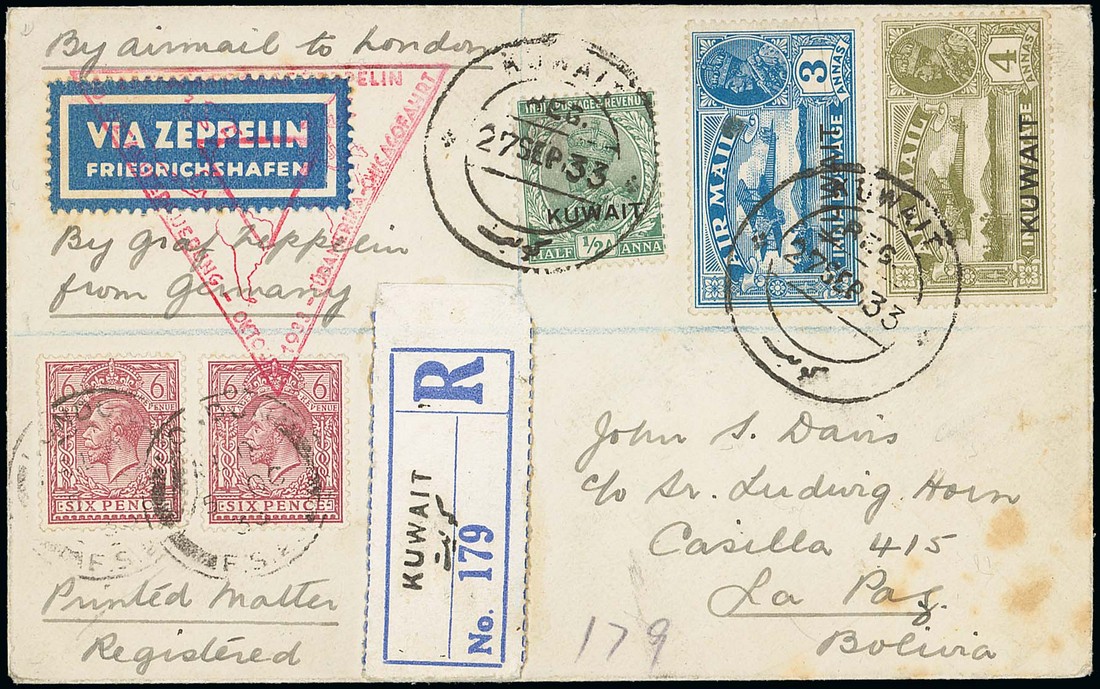 By airmail to London
VIA ZEPPELIN
FRIEDRICHSHAFEN
SÜDAMERIKA-CHICAGOFAHRT
OKTO 1933
By Graf Zeppelin
from Germany
KUWAIT
REG.
27 SEP. 33
كويت
INDIA POSTAGE & REVENUE
KUWAIT
HALF ½A ANNA
3
ANNAS
AIR MAIL
KUWAIT
INDIA POSTAGE
4
ANNAS
AIR MAIL
KUWAIT
KUWAIT
REG
27 SEP 33
كويت
6 6
POSTAGE REVENUE
SIX PENCE
6 6
POSTAGE REVENUE
SIX PENCE
F.S.
F.S.
R
KUWAIT
كويت
No. 179
Printed Matter
Registered
179
John S. Davis
c/o Sr. Ludwig Horn
Casilla 415
La Paz
Bolivia